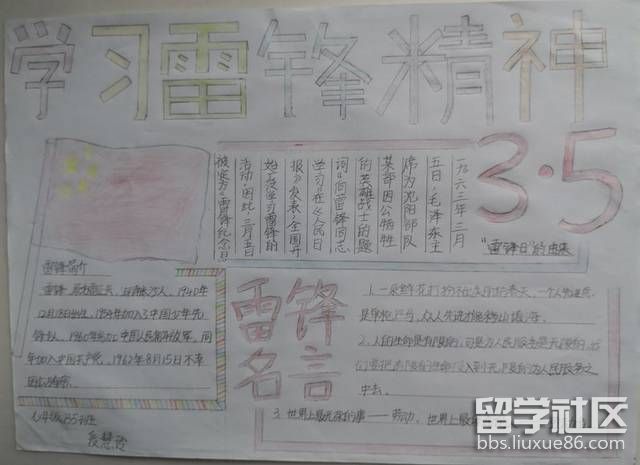 学习雷锋精神
3·5
"雷锋日"的由来
一九六三年三月
五日，毛泽东主
席为沈阳部队
某部因公牺牲
的英雄战士的题
词"向雷锋同志
学习"在《人民日
报》发表，全国开
始了学习雷锋的
活动，因此，三月五日
被定为"雷锋纪念日
雷锋简介
雷锋，湖南人，1940年
12月18日出生，1954年加入了中国少年先
锋队，1960年参加中国人民解放军，同
年加入中国共产党。1962年8月15日不幸
因公殉职。
雷锋
名言
1.一朵鲜花打扮不出美丽的春天，一个人先进总
是单枪匹马，众人先进才能移山填海。
2、人的生命是有限的，可是为人民服务是无限的，
要把有限的生命投入到无限的为人民服务之
中去。
3.世界上最光荣的事——劳动，世界上最
班
留学社区
bbs.liuxue86.com